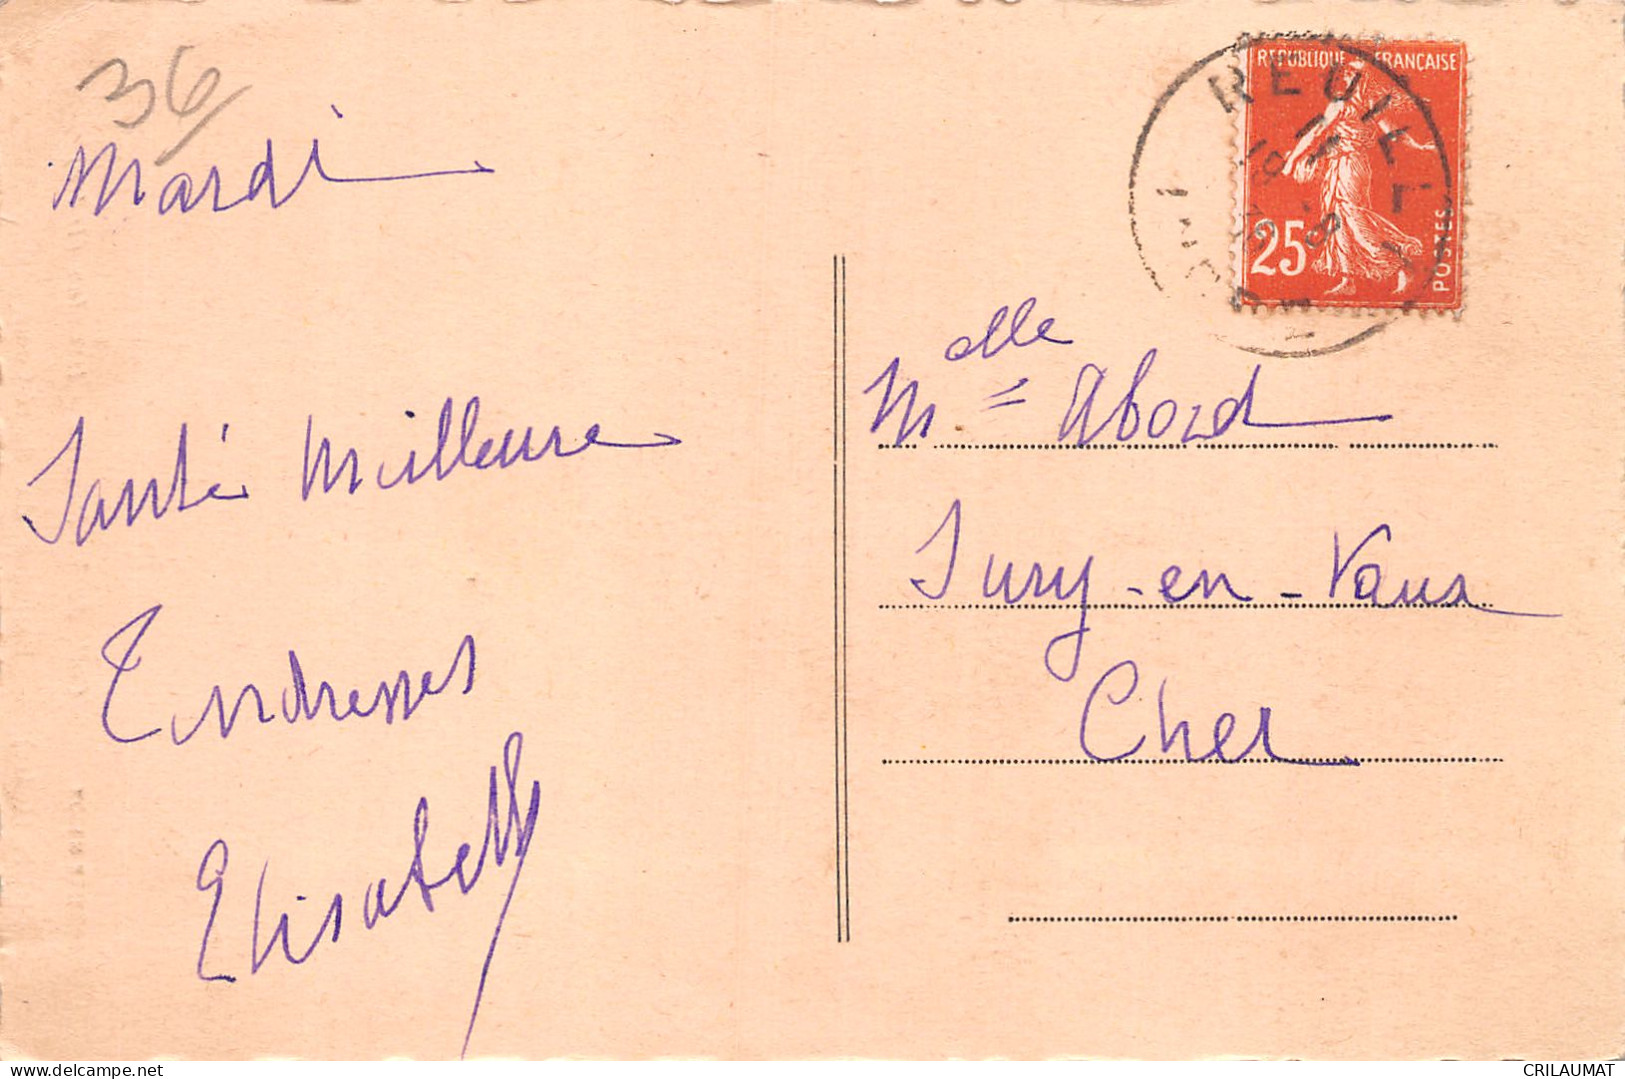 36
Mardi
Santé Meilleure
Tendresses
Elisabeth
REPUBLIQUE FRANÇAISE
25
POSTES
REUILLY
INDRE
Melle Abord
Jury-en-Vaux
Cher
CRILAUMAT